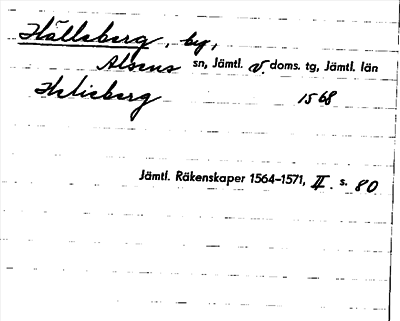 Hällsberg, by,
Alsens sn, Jämtl. v. doms. tg, Jämtl. län
Helisberg 1568
Jämtl. Räkenskaper 1564–1571, II. s. 80